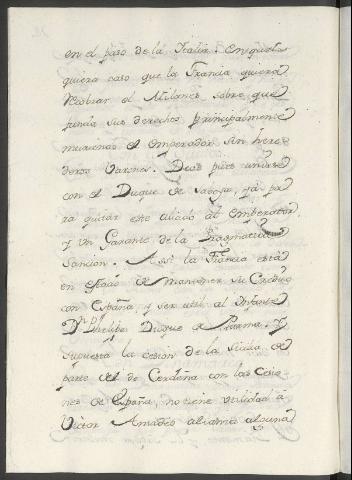 en el paso de la Italia. En qual-
quiera caso que la Francia quiera
recobrar el Milanes sobre que
funda sus derechos principalmente
muriendo el Emperador sin here-
deros Varones. Deve pues unirse
con el Duque de Saboya, ya pa
ra quitar este aliado al Emperador,
y un Garante de la Pragmatica
Sancion. Assi la Francia está
en estado de mantener su Credito
con España, y ser util al Infante
Dn. Phelipe Duque de Parma. Y
supuesta la cesion de la Sicilia de
parte del de Cerdeña con las Cesio-
nes de España, no tiene utilidad a
Victor Amadeo alianza alguna